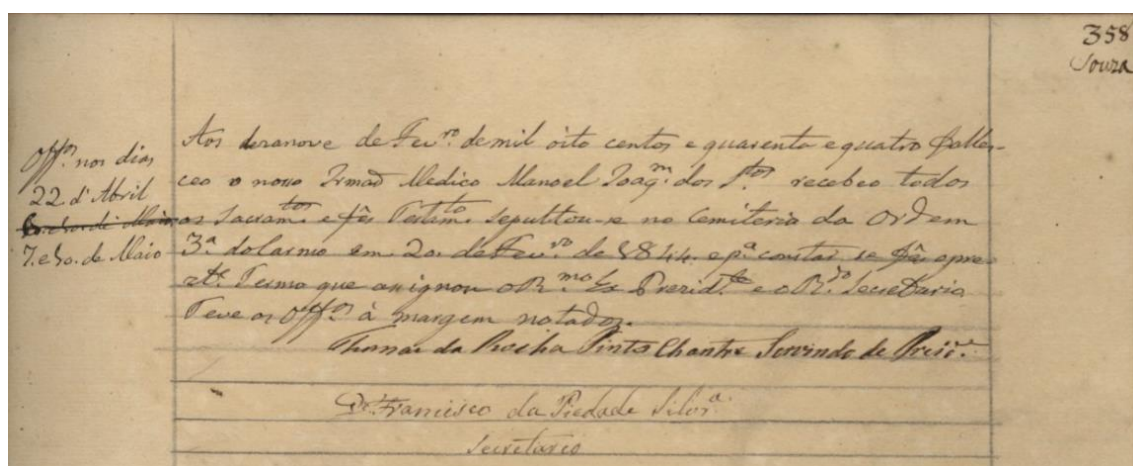 358
Souza
Off.os nos dias
22 d'Abril
7. e 30. de Maio
Aos dezanove de Fev.ro de mil oito centos e quarenta e quatro falle-
ceo o nosso Irmaõ Medico Manoel Joaq.m dos S.tos recebeo todos
os Sacram.tos e fes Testm.to sepultou-se no Cemiterio da Ordem
3.a do Carmo em 20. de Fev.ro de 1844. e p.a constar se fes o pre-
Termo que assignou o R.mo Ex Prezid.te e o R.do Secretario
Teve os Off.os à margem notados.
Thomas da Rocha Pinto Chantre Servindo de
Francisco da Piedade Silvr.a
Secretario